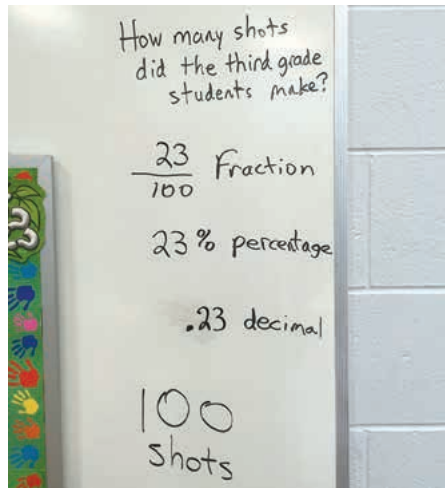 How many shots
did the third grade
students make?
23
100
Fraction
23% percentage
.23 decimal
100
shots